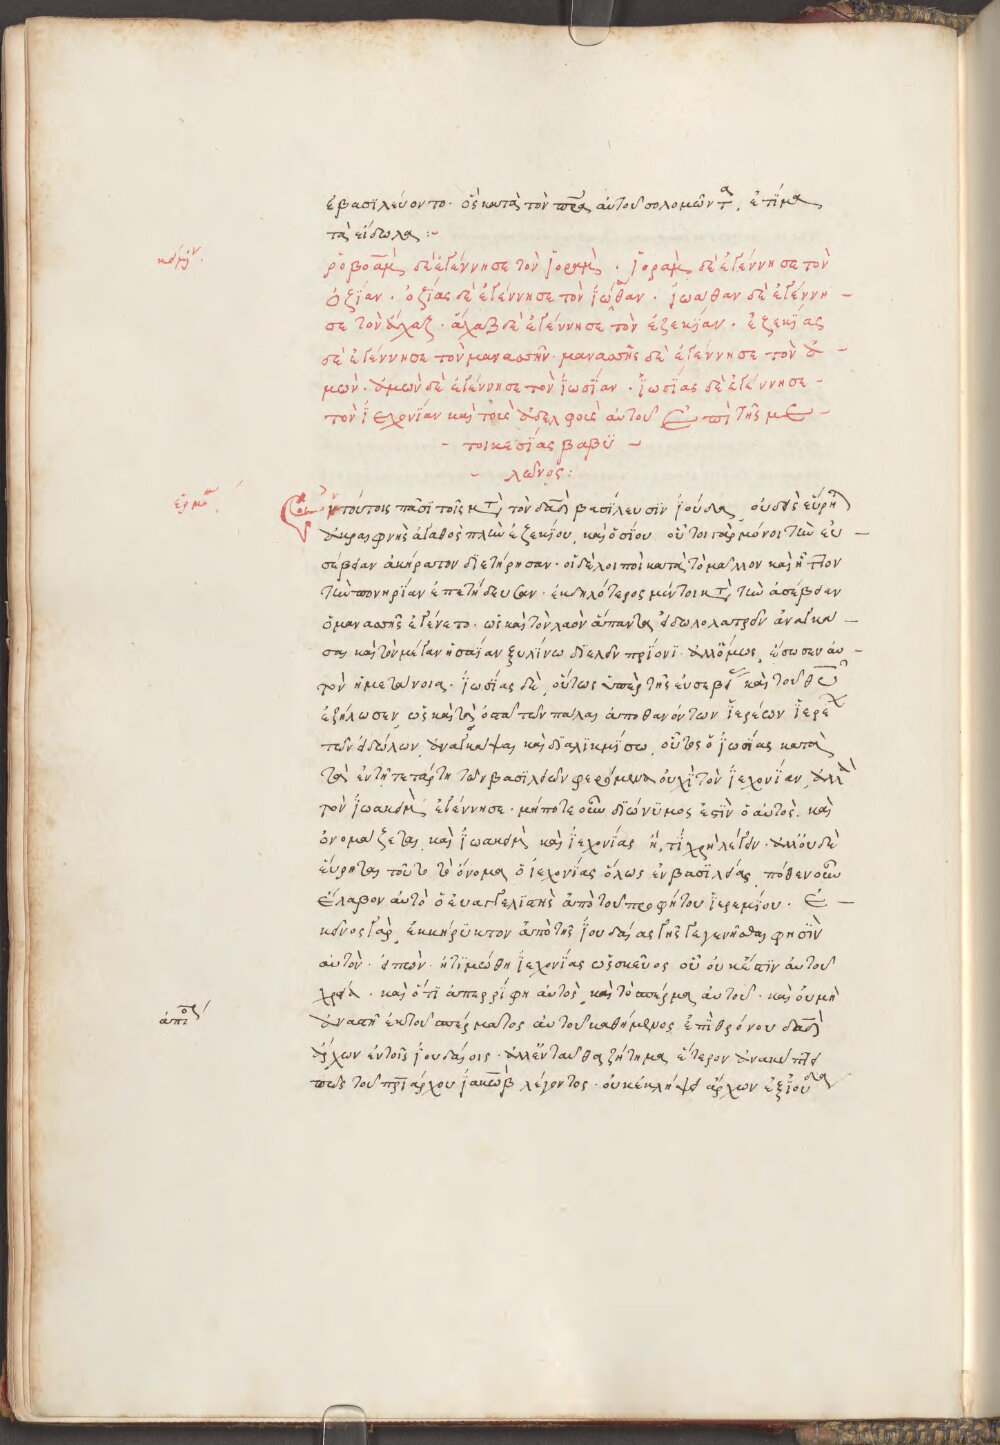 ἐβασϊλεύοντο· ὃς κατὰ τὸν πρ̅α αὐτοῦ σολομῶντα, ἐτίμα
τὰ εἴδωλα:-
κείμεν.
ῥοβοὰμ δὲ ἐγέννησε τὸν ἰοραμ· ἰορὰμ δὲ ἐγέννησε τὸν
ὀζίαν· ὀζίας δὲ ἐγέννησε τὸν ϊώθαν· ἰωάθαν δὲ ἐγέννη -
σε τὸν ἄχαζ· ἄχαζ δὲ ἐγέννησε τὸν ἐζεκίαν· ἐζεκίας
δὲ ἐγέννησε τὸν μανασσῆν· μανασσῆς δὲ ἐγέννησε τὸν ἀ -
μών· ἀμὼν δὲ ἐγέννησε τὸν ϊωσΐαν· ϊωσΐας δὲ ἐγέννησε -
τὸν ἰεχονΐαν καὶ τοὺς ἀδελφοὺς αὐτοῦ ἐπὶ τῆς με -
- τοικεσΐας βαβϋ -
- λῶνος:
ἑρμη
ἐν τούτοις πᾶσϊ τοῖς κτ τὸν δαδ βασϊλεῦσϊν ϊούδα, οὐδεὶς εὕρηται
ἀκραιφνὴς ἀγαθὸς πλὴν ἐζεκίου, καὶ ὀσίου οὗτοι γὰρ μόνοι τὴν εὐ -
σέβειαν ἀκήρατον διετήρησαν· οἱ δὲ λοιποὶ κατὰ τὸ μᾶλλον καὶ ἧττον
τὴν πονηρίαν ἐπετήδευσαν· ἐκδηλότερος μέντοι κτ τὴν ἀσέβειαν
ὁ μανασσῆς ἐγένετο· ὡς καὶ τὸν λαὸν ἅπαντα εἰδωλολατρεῖν ἀναγκά -
σαι καὶ τὸν μέγαν ἡσαΐαν ξυλίνω διελεῖν πρίονϊ· ἀλλόμως, ἔσωσεν αὐ -
τὸν ἡ μετάνοια· ϊωσΐας δὲ, οὕτως ὑπὲρ τῆς εὐσεβεί καὶ τοῦ θῦ
ἐζήλωσεν, ὡς καὶ τὰ ὀστᾶ τῶν πάλαι ἀποθανόντων ϊερέων ϊερε
τῶν εἰδώλων, ἀνασκάψας καὶ διαλικμίσω, οὗτος ὁ ϊωσΐας κατὰ
τὰ ἐν τῆ τετάρτη τῶν βασϊλειῶν φερόμενα οὐχὶ τὸν ϊεχονΐαν, ἀλλὰ
τὸν ϊωακεὶμ ἐγέννησε· μήποτε οὖν διώνϋμος ἐστὶν ὁ αὐτὸς. καὶ
ὀνομάζεται καὶ ϊωακεὶμ καὶ ϊεχονΐας ἢ, τί χρὴ λέγειν· ἀλλοὐδὲ
εὕρηται τοῦτο τὸ ὄνομα ὁ ἰεχονίας ὅλως ἐν βασϊλείαις, πόθεν οὖν
ἔλαβον αὐτὸ ὁ εὐαγγελϊστὴς ἀπὸ τοῦ προφήτου ϊερεμίου. Ἐ -
κεῖνος γὰρ, ἐκκήρϋκτον ἀπὸ τῆς ϊουδαίας γῆς γεγενῆσθαι φησϊν
αὐτὸν· εἰπὼν· ἠτϊμώθη ϊεχονΐας ὡς σκεῦος οὗ οὐκ ἔστϊν αὐτοῦ
χρεία. καὶ ὅτϊ ἀπερρίφη αὐτὸς, καὶ τὸ σπέρμα αὐτοῦ· καὶ οὐ μὴ
ἀναστῆ ἐκ τοῦ σπέρματος αὐτοῦ καθήμενος, ἐπὶ θρόνου δαδ
ἄρχων ἐν τοῖς ϊουδαίοις· ἀλλἐνταῦθα ζήτημα ἕτερον ἀνακύπτει
πῶς τοῦ πρϊάρχου ϊακὼβ λέγοντος· οὐκ ἐκλείψει ἄρχων ἐξ ϊούδα